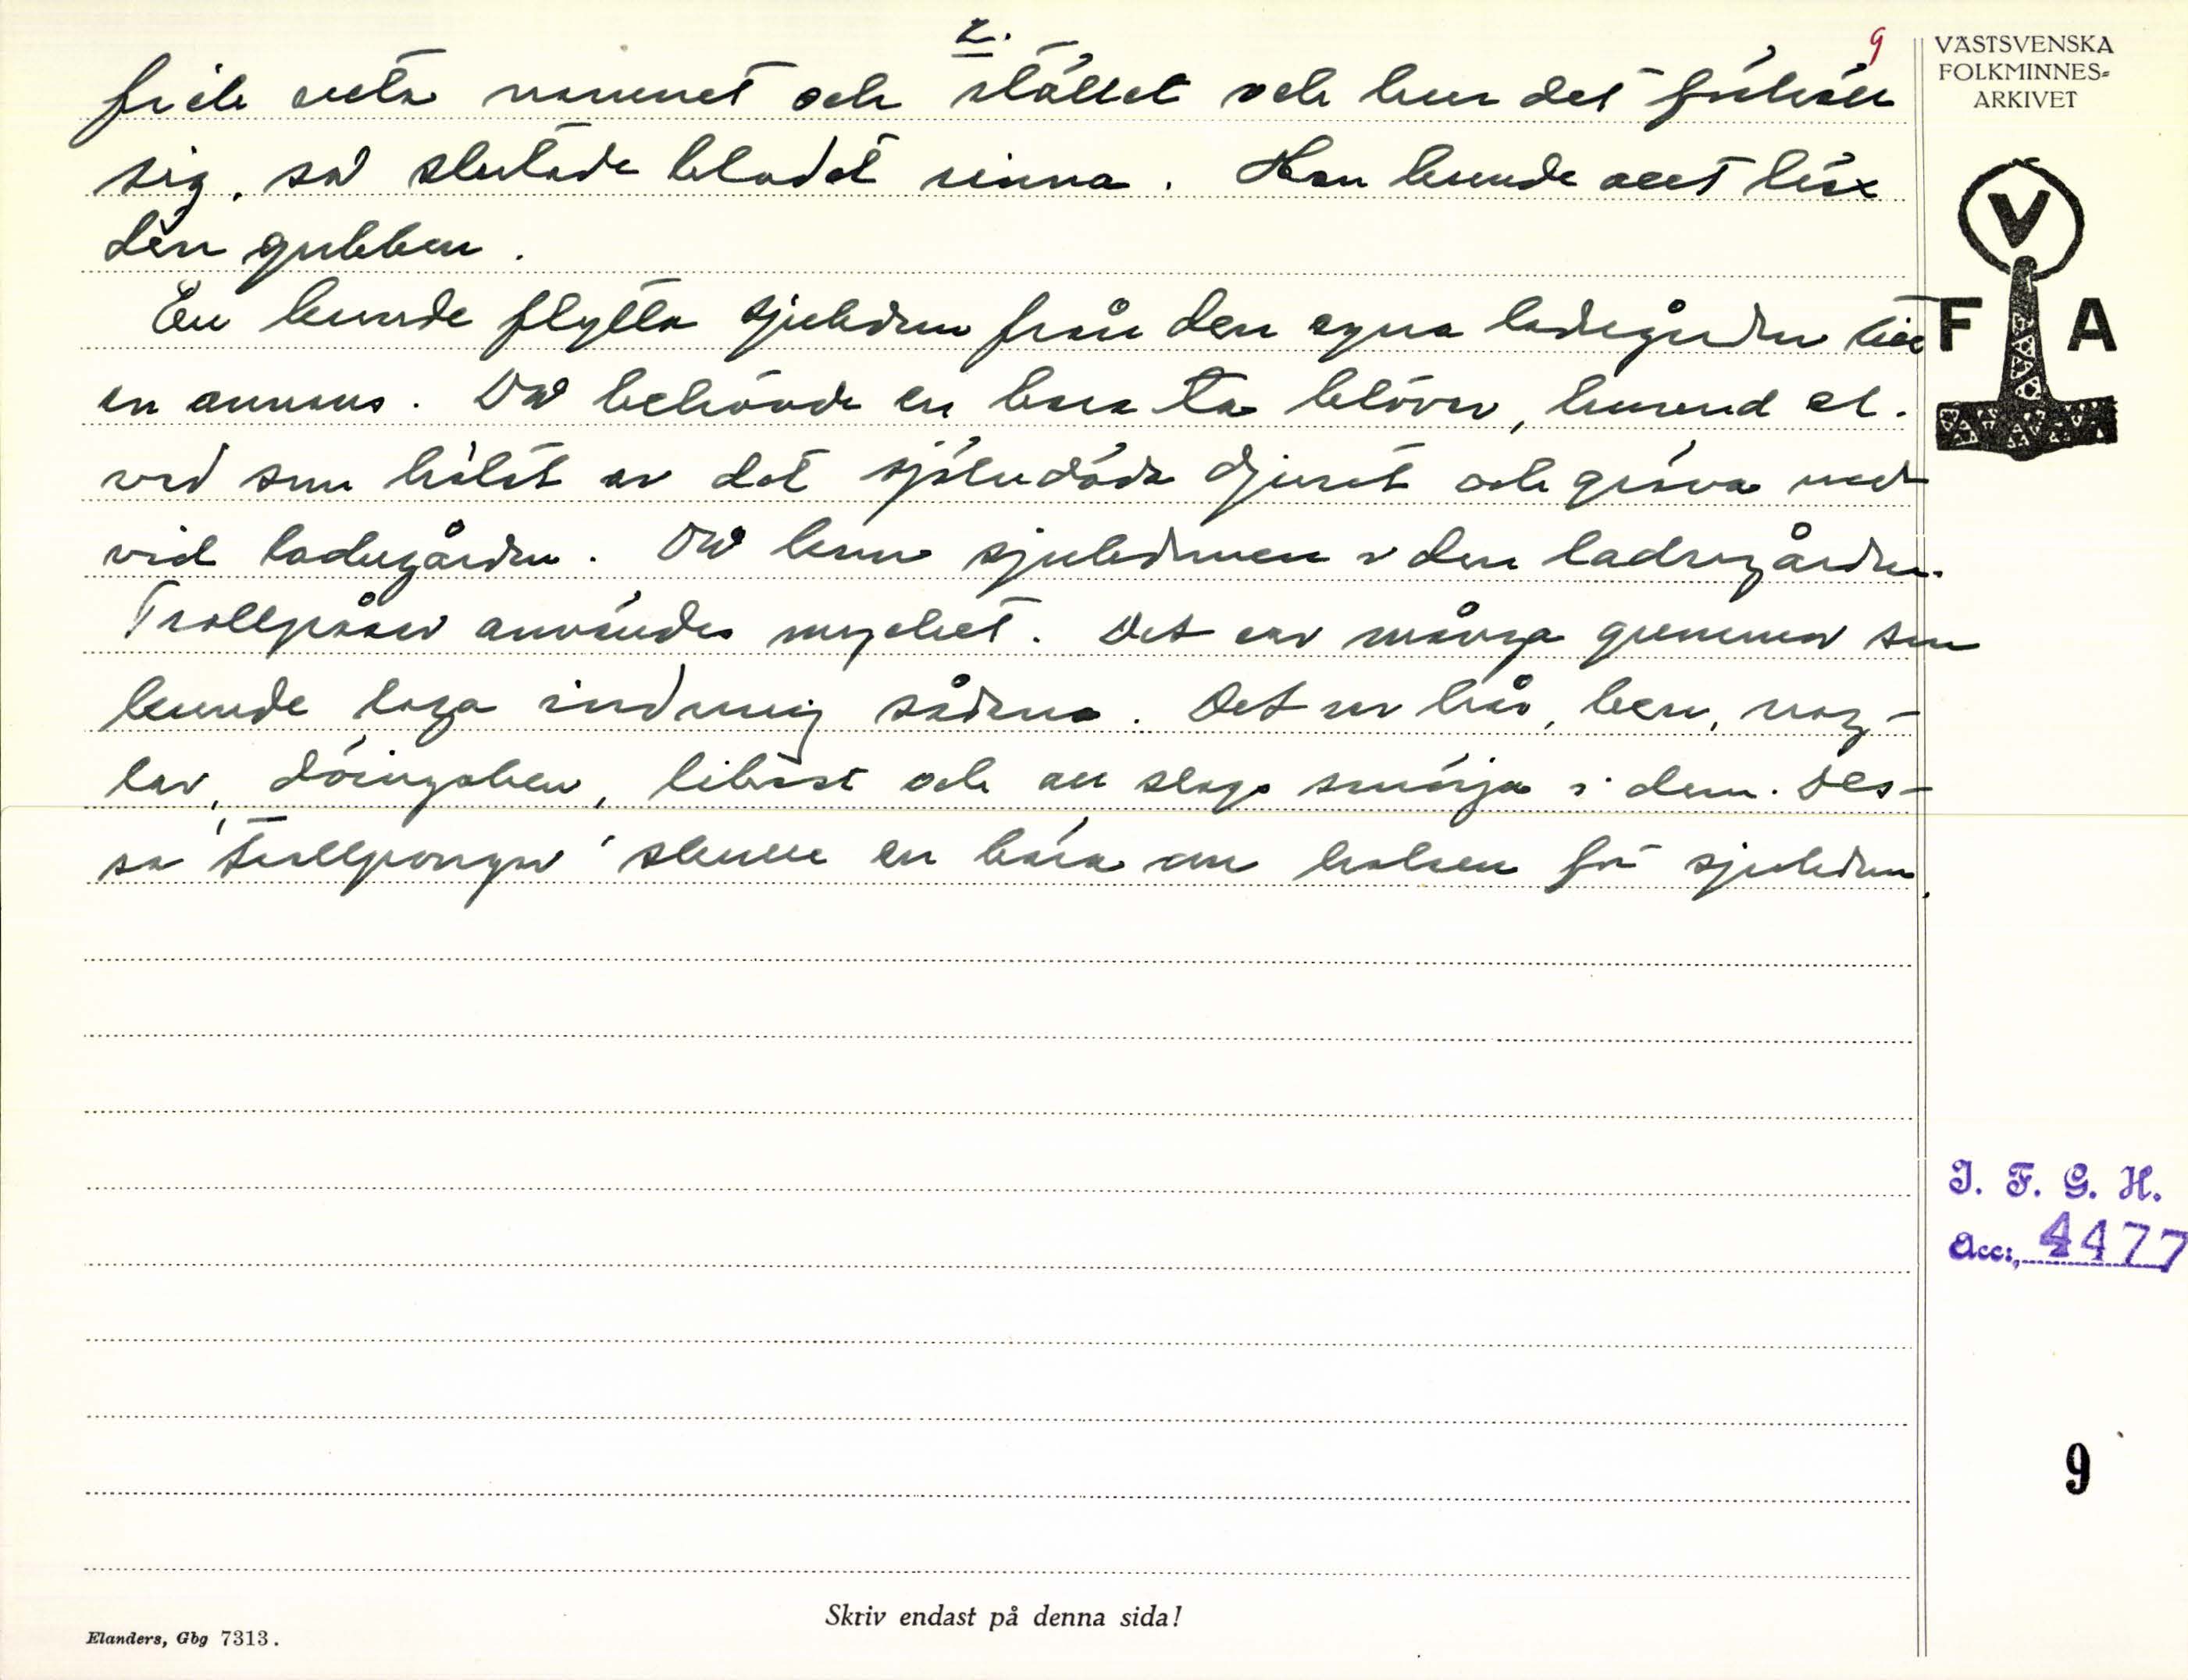 2.
9
fick veta namnet och stället och hur det förhöll
sig, så slutade blodet rinna. Han kunde allt läxa
den gubben.
En kunde flytta sjukdom från den egna ladugården till
en annans. Då behövde en bara ta klövar, huvud el.
vad som hälst av det självdöda djuret och gräva ned
vid ladugården. Då kom sjukdomen i den ladugården.
Trollpåsar användes mycket. Det var många gummor som
kunde laga innmäj sådana. Det var hår, ben, nag-
lar, döingaben, likväst och all slags smörja i dem. Des-
sa "trollpongar" skulle en bära om halsen för sjukdom.
VÄSTSVENSKA
FOLKMINNES=
ARKIVET
V
F A
I. F. G. H.
Acc:, 4477
9
Skriv endast på denna sida!
Elanders, Gbg 7313.